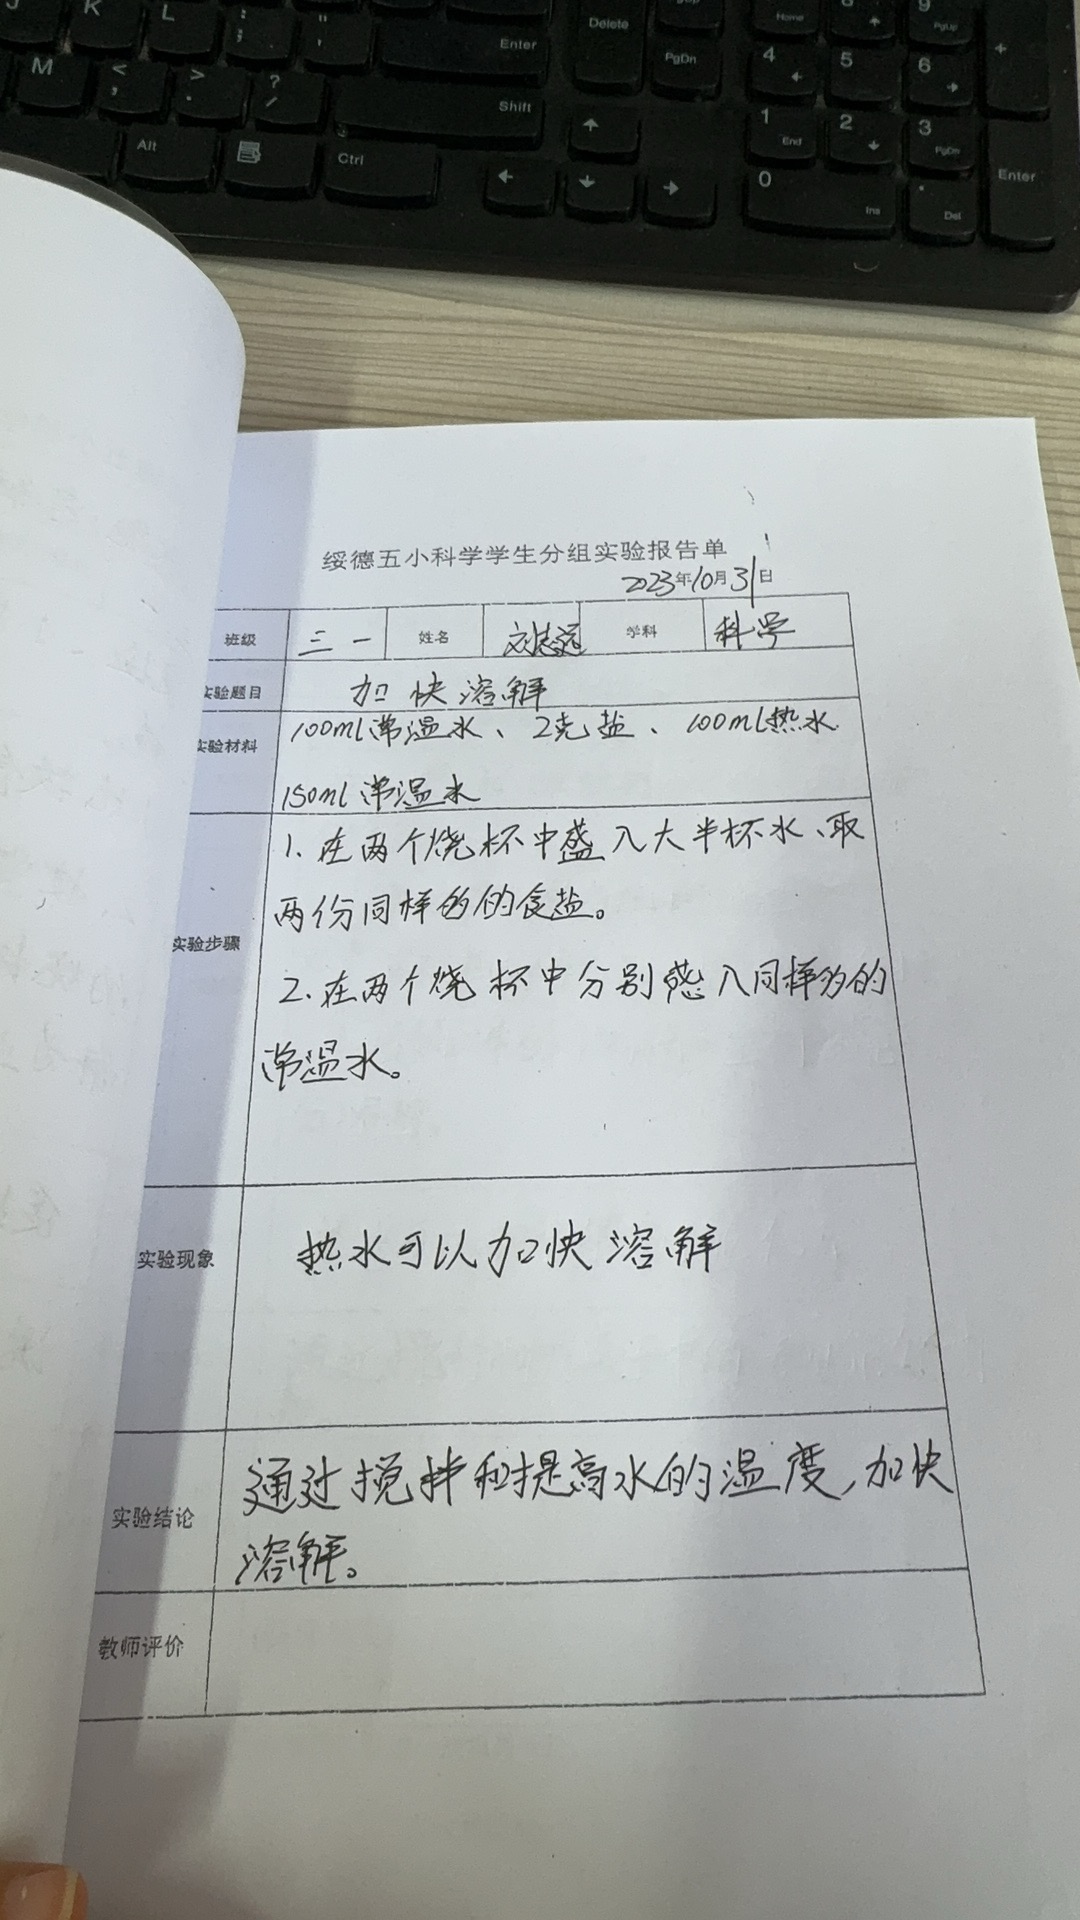 J K L : ; " ' Enter Delete PgUp PgDn Home 8 9 PgUp +
M < , > . ? / Shift 4 5 6
Alt Ctrl 1 End 2 3 PgDn Enter
0 Ins . Del
绥德五小科学学生分组实验报告单
2023年10月31日
班级 三一 姓名 刘志远 学科 科学
实验题目 加快溶解
实验材料 100ml常温水、2克盐、100ml热水
150ml常温水
1.在两个烧杯中盛入大半杯水、取
两份同样多的食盐。
实验步骤
2.在两个烧杯中分别盛入同样多的
常温水。
实验现象 热水可以加快溶解
通过搅拌和提高水的温度,加快
实验结论
溶解。
教师评价